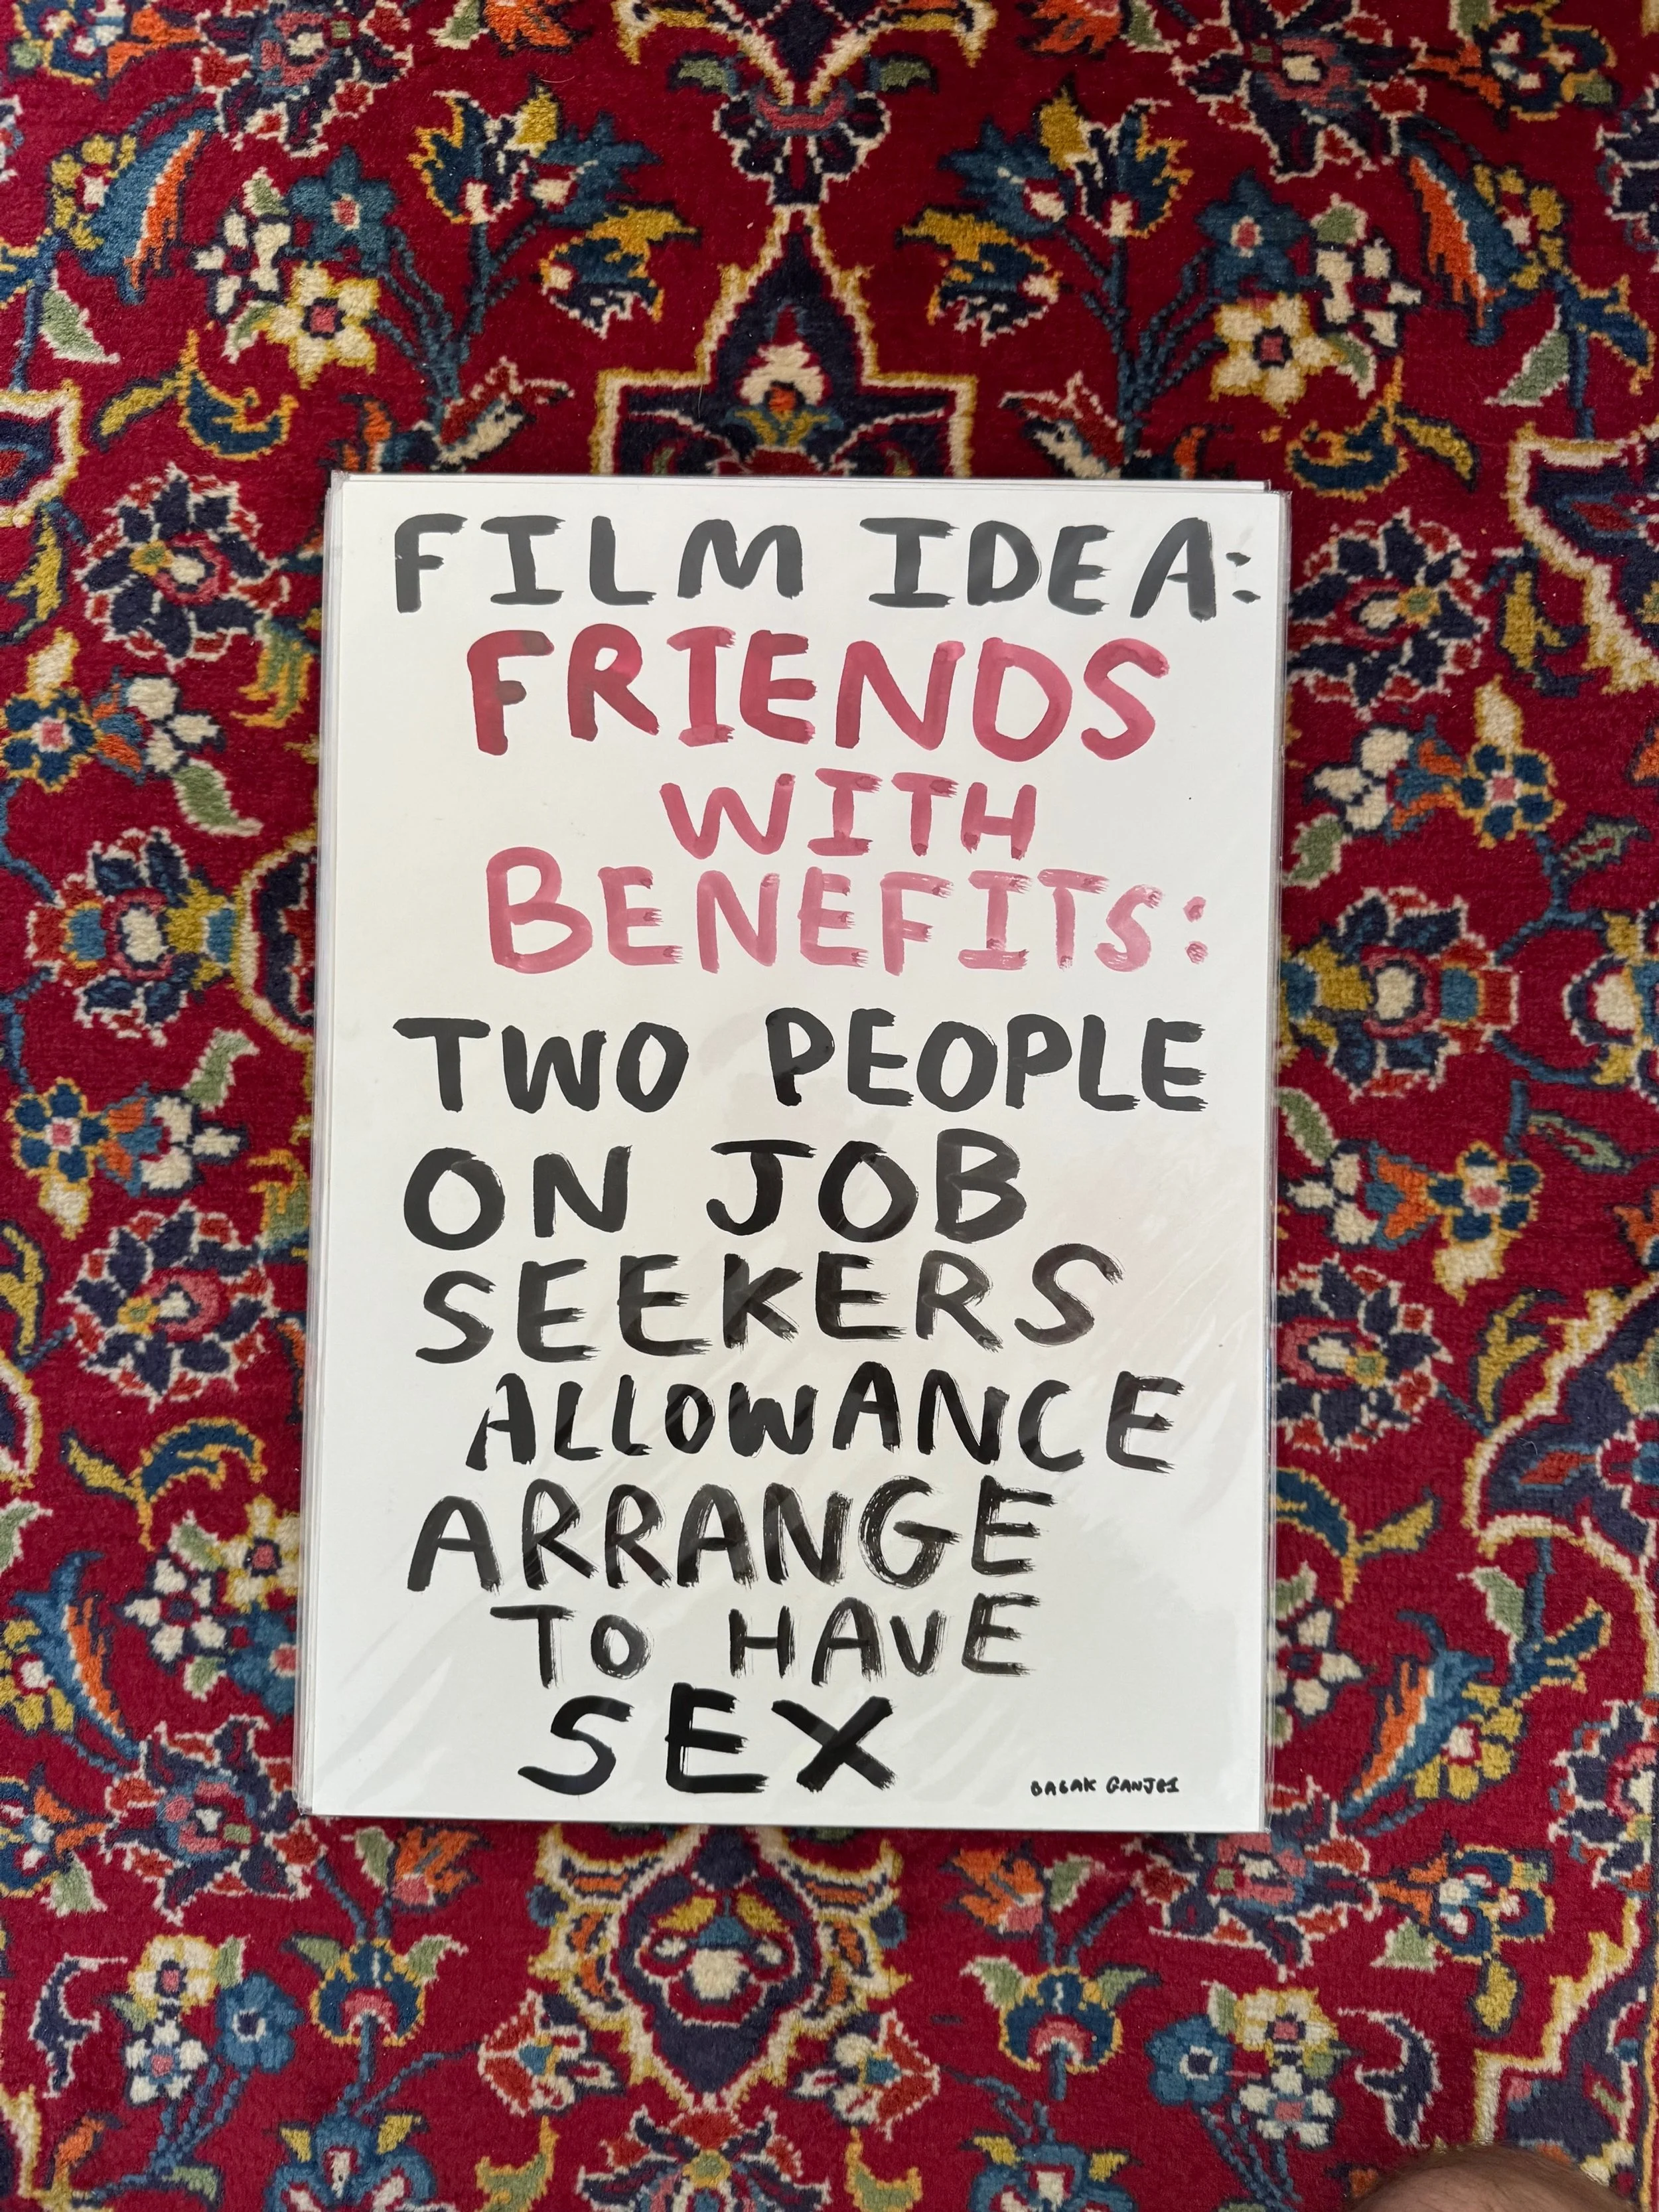 FILM IDEA:
FRIENDS
WITH
BENEFITS:
TWO PEOPLE
ON JOB
SEEKERS
ALLOWANCE
ARRANGE
TO HAVE
SEX
BABAK GANJEI